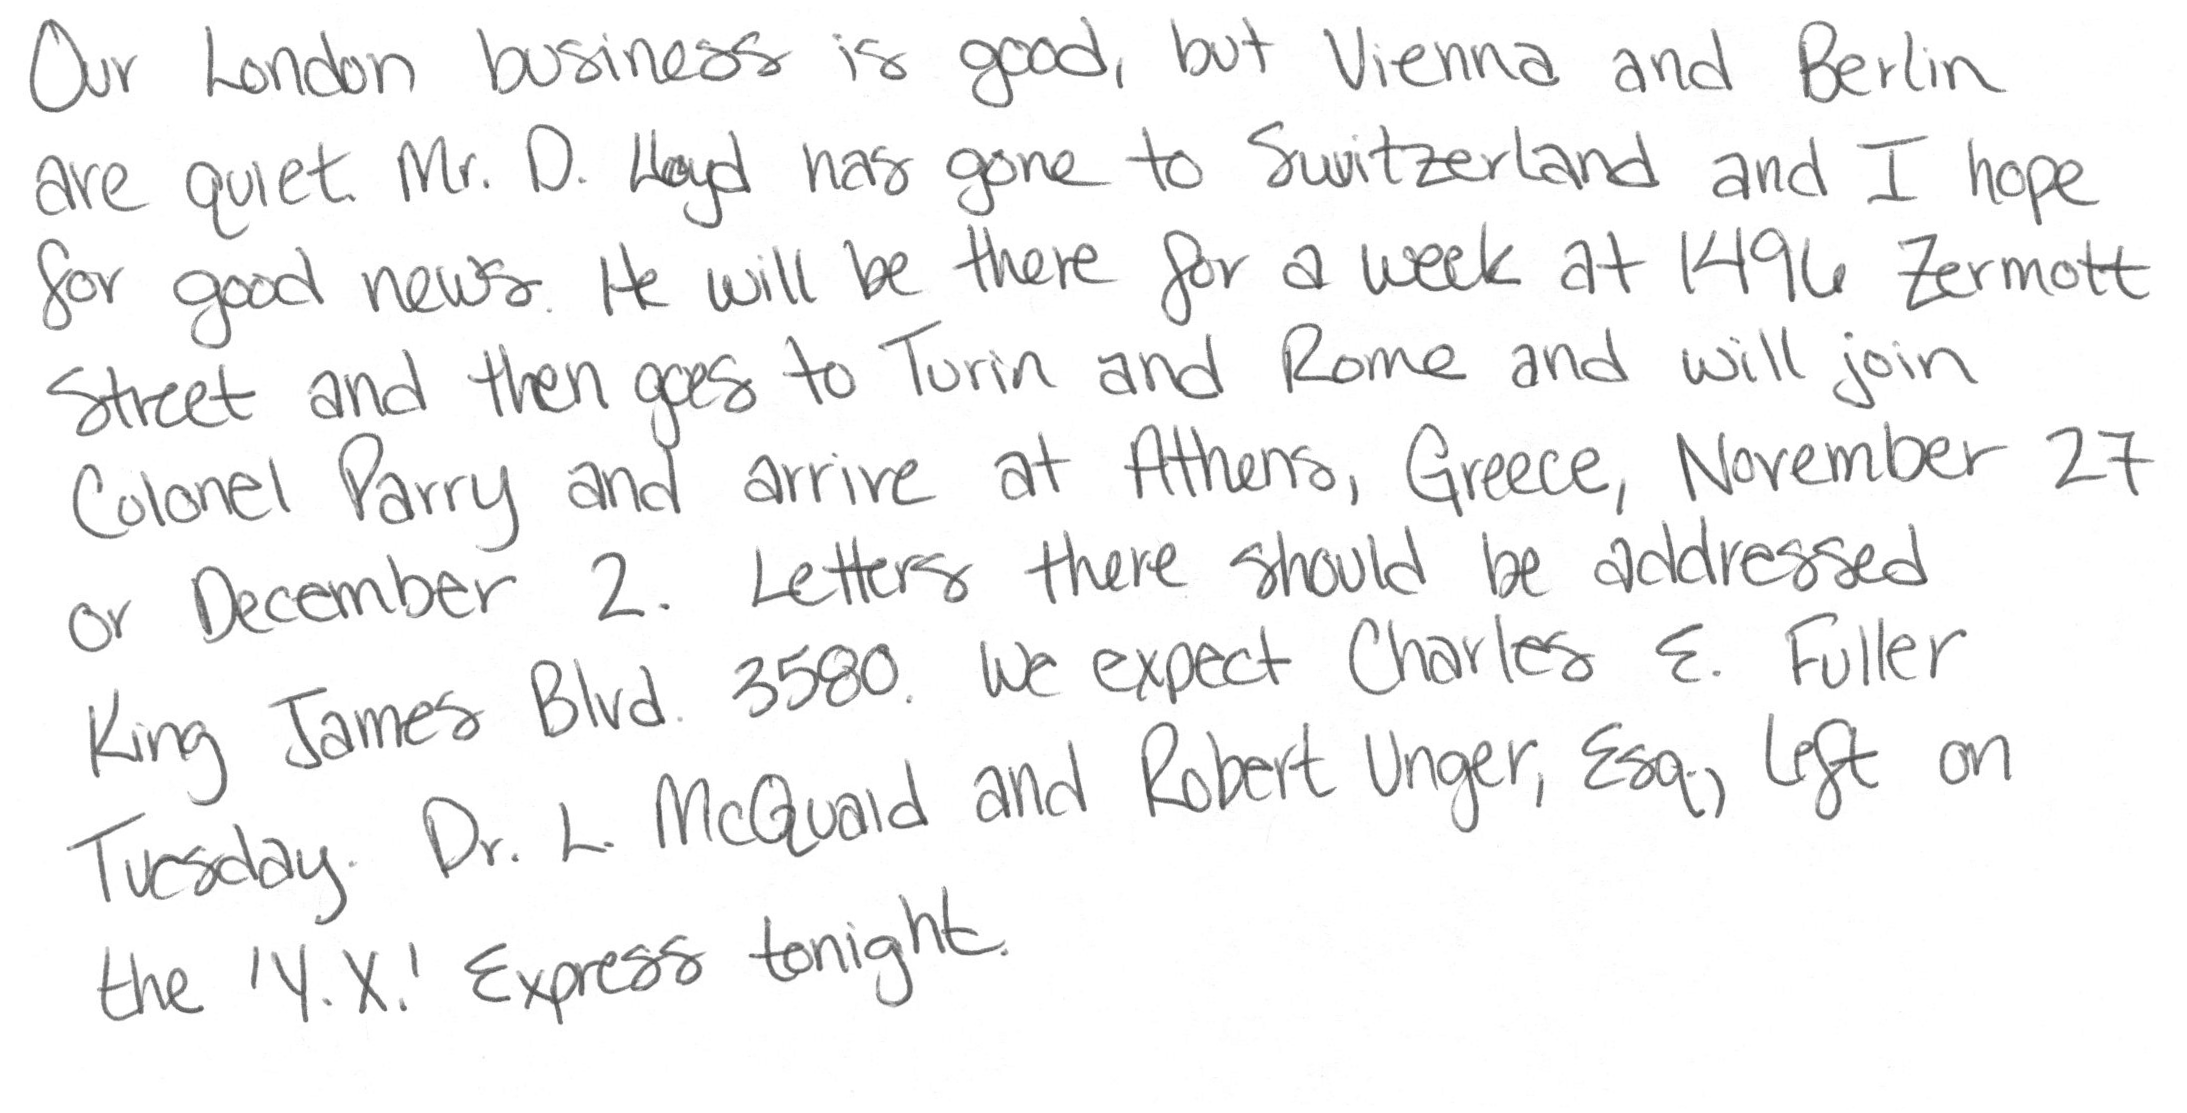 Our London business is good, but Vienna and Berlin
are quiet. Mr. D. Lloyd has gone to Switzerland and I hope
for good news. He will be there for a week at 1496 Zermott
Street and then goes to Turin and Rome and will join
Colonel Parry and arrive at Athens, Greece, November 27
or December 2. Letters there should be addressed
King James Blvd. 3580. We expect Charles E. Fuller
Tuesday. Dr. L. McQuaid and Robert Unger, Esq., left on
the 'Y.X.' Express tonight.